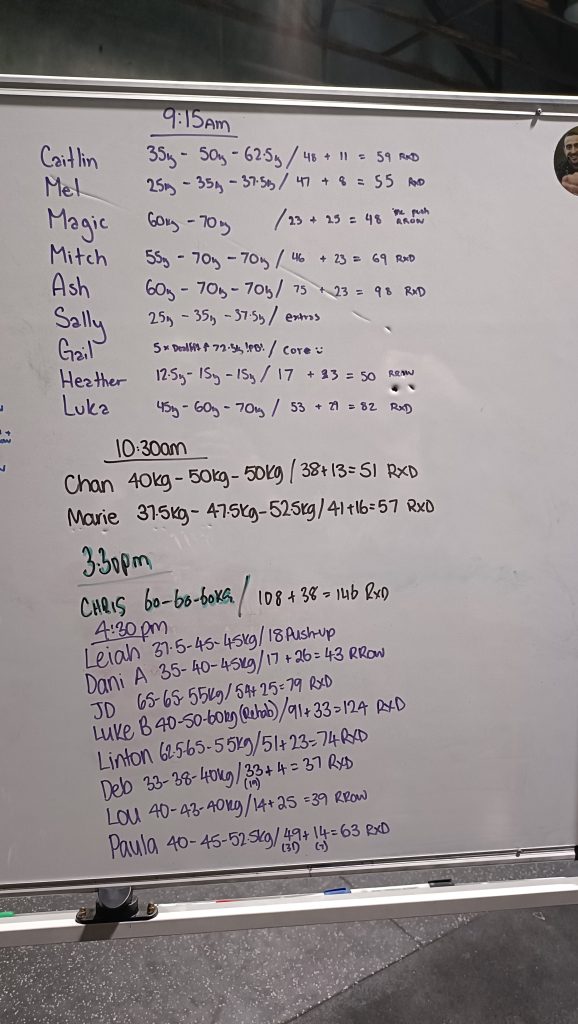 9:15AM
Caitlin 35kg - 50kg - 62.5kg / 48 + 11 = 59 RxD
Mel 25kg - 35kg - 37.5kg / 47 + 8 = 55 RxD
Magic 60kg - 70kg / 23 + 25 = 48 push RROW
Mitch 55kg - 70kg - 70kg / 46 + 23 = 69 RxD
Ash 60kg - 70kg - 70kg / 75 + 23 = 98 RxD
Sally 25kg - 35kg - 37.5kg / extras
Gail 5 x Deadlifts 72.5kg !PB! / Core
Heather 12.5kg - 15kg - 15kg / 17 + 33 = 50 RROW
Luka 45kg - 60kg - 70kg / 53 + 29 = 82 RxD
10:30am
Chan 40kg - 50kg - 50kg / 38+13=51 RXD
Marie 37.5kg - 47.5kg - 52.5kg / 41+16=57 RXD
3:30pm
CHRIS 60-60-60KG / 108 + 38 = 146 RXD
4:30pm
Leiah 37.5-45-45kg / 18 Push-up
Dani A 35-40-45kg / 17+26=43 RROW
JD 65-65-55kg / 54+25=79 RXD
Luke B 40-50-60kg (Rehab) / 91+33=124 RXD
Linton 62.5-65-55kg / 51+23=74 RXD
Deb 33-38-40kg / 33+4=37 RXD
(19)
Lou 40-43-40kg / 14+25=39 RROW
Paula 40-45-52.5kg / 49+14=63 RXD
(31) (7)